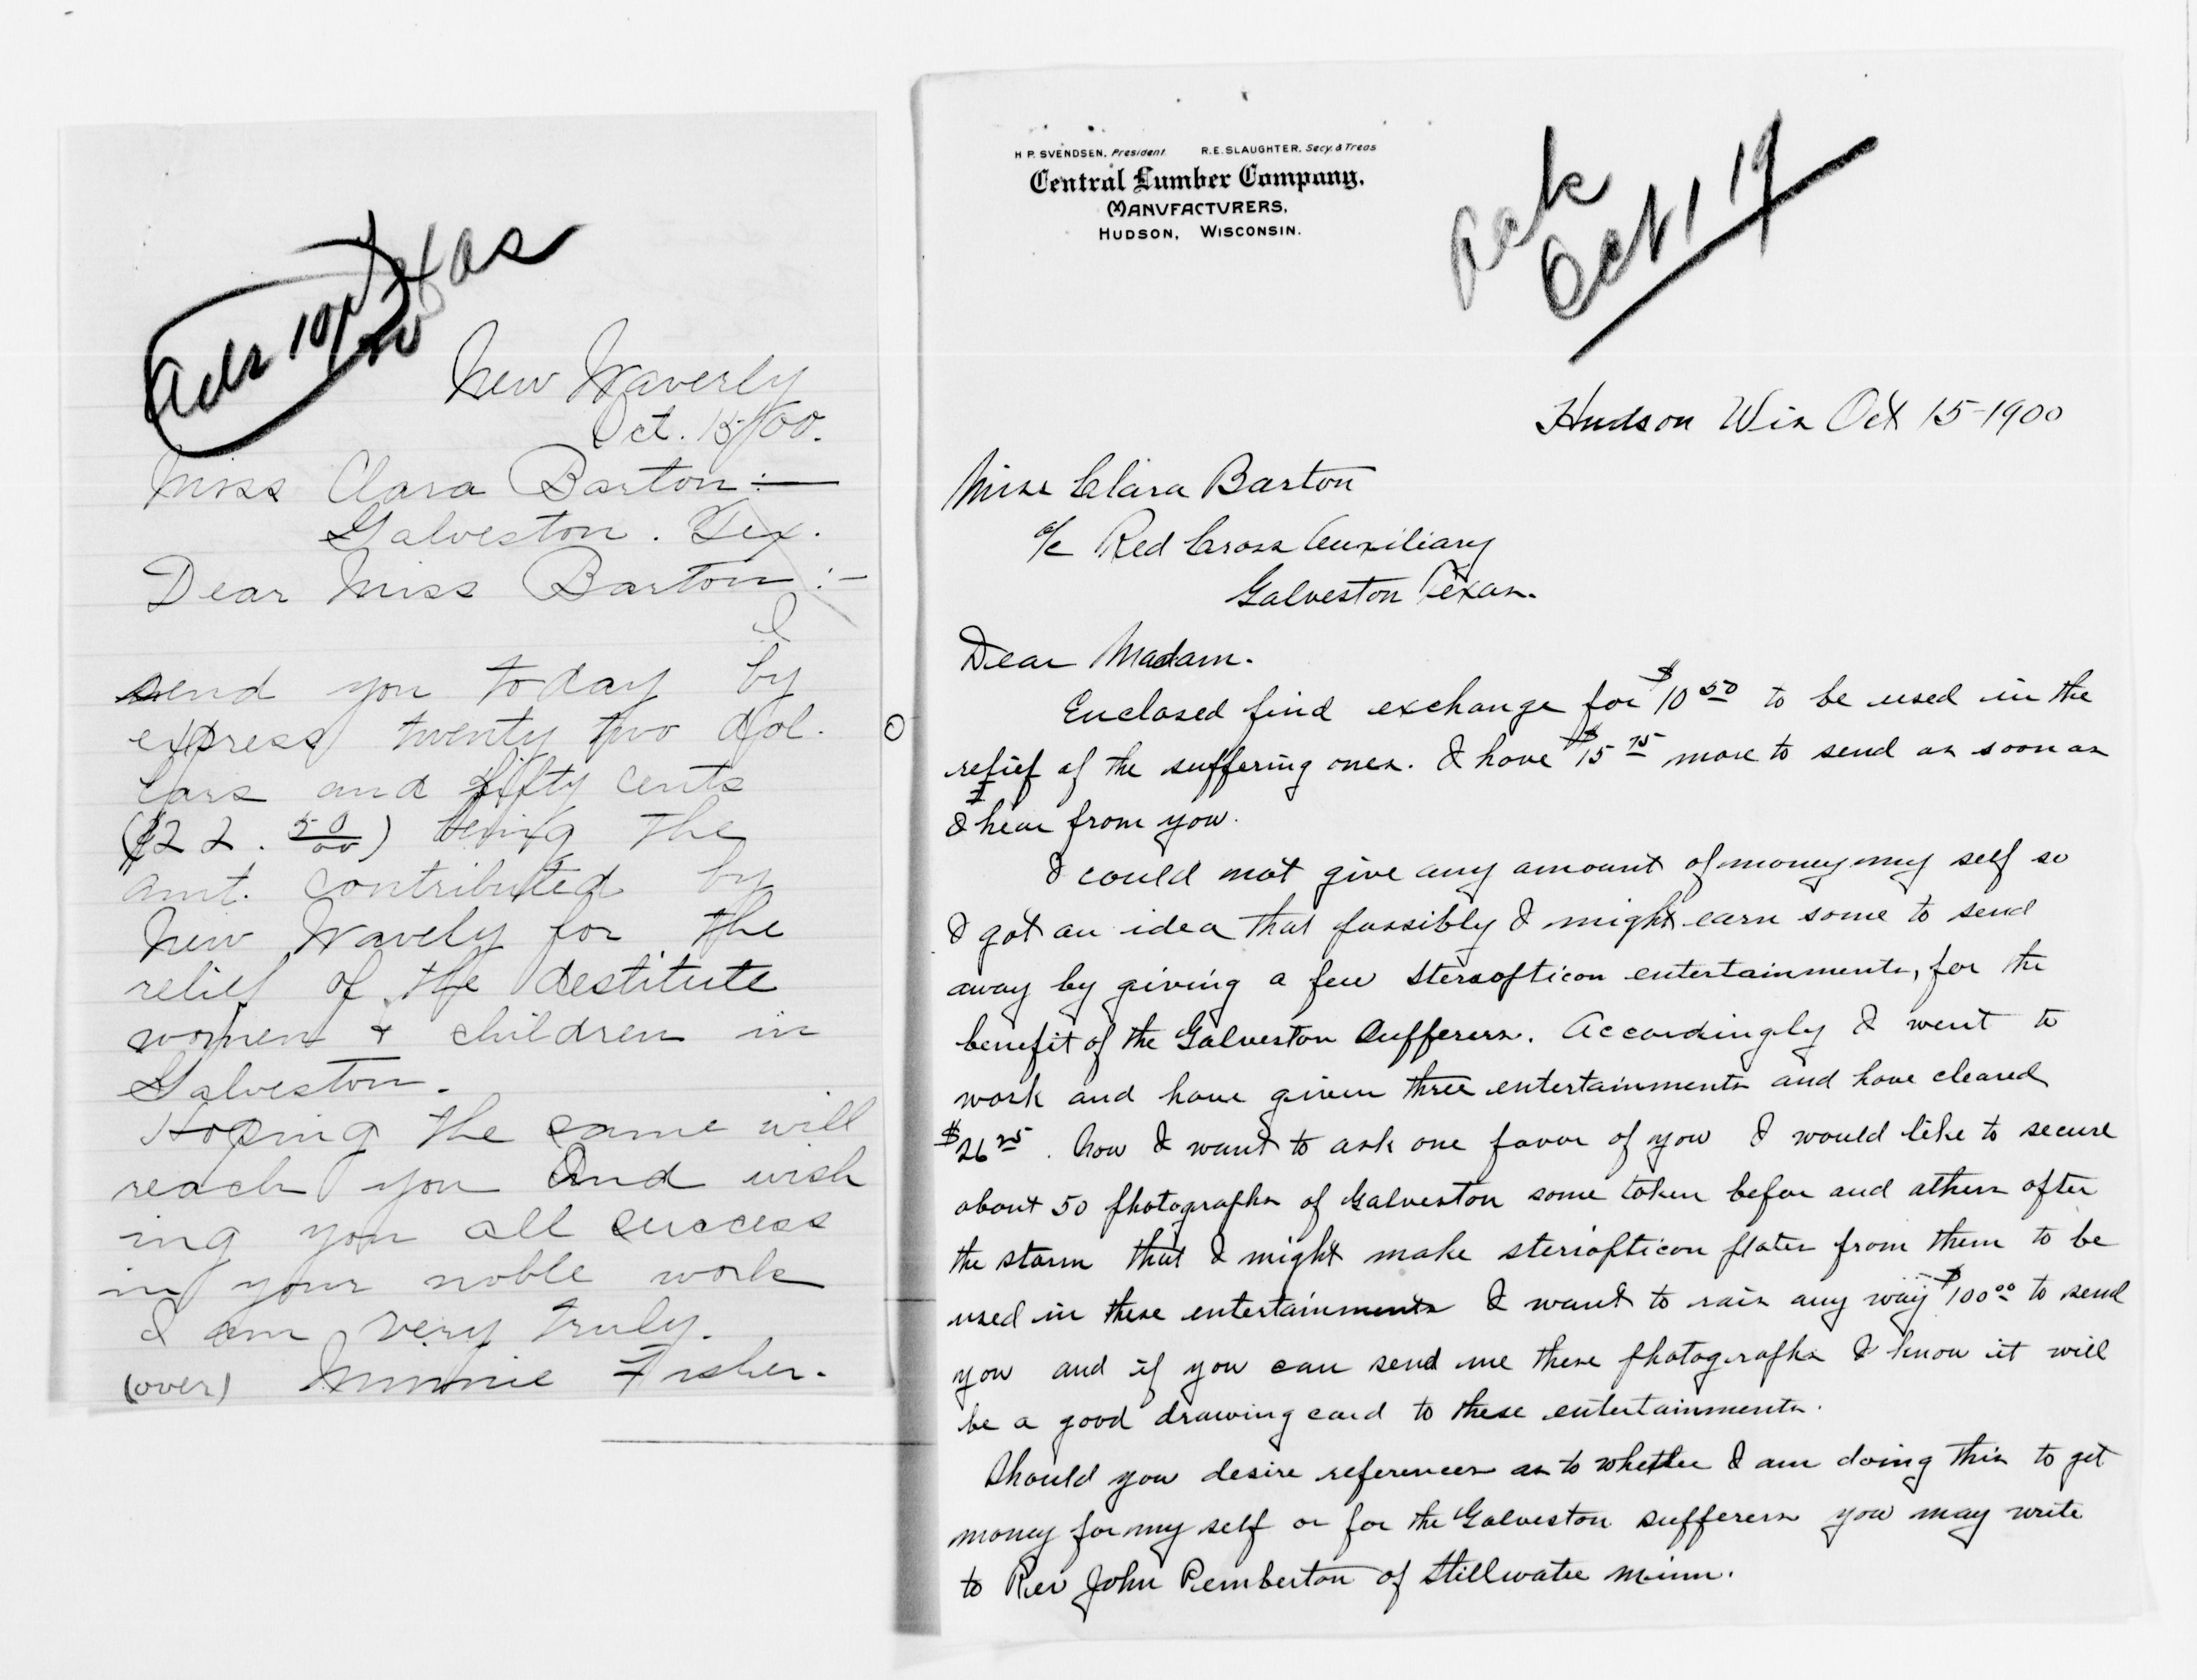 New Waverly
Oct. 15/00.
Miss Clara Barton :—
Galveston. Tex.
Dear Miss Barton :-
I
send you today by
express twenty two dol.
lars and fifty cents
($22. 50/00) being the
amt. contributed by
New Wavely for the
relief of the destitute
women + children in
Galveston.
Hoping the same will
reach you and wish
ing you all success
in your noble work
I am very truly.
(over) Minnie Fisher.
H. P. SVENDSEN, President. R. E. SLAUGHTER, Secy. & Treas
Central Lumber Company,
MANUFACTURERS,
HUDSON, WISCONSIN.
Ack
Oct 19
Hudson Wis Oct 15-1900
Miss Clara Barton
c/o Red Cross Auxiliary
Galveston Texas.
Dear Madam.
Enclosed find exchange for $10 50 to be used in the
relief of the suffering ones. I have $15 75 more to send as soon as
I hear from you.
I could not give any amount of money my self so
I got an idea that possibly I might earn some to send
away by giving a few Stereopticon entertainments, for the
benefit of the Galveston Sufferers. Accordingly I went to
work and have given three entertainments and have cleared
$26 25. Now I want to ask one favor of you I would like to secure
about 50 photographs of Galveston some taken before and others after
the storm that I might make steriopticon plates from them to be
used in these entertainments I want to rais any way $100 00 to send
you and if you can send me these photographs I know it will
be a good drawing card to these entertainments.
Should you desire references as to whether I am doing this to get
money for my self or for the Galveston sufferers you may write
to Rev John Pemberton of Stillwater Minn.